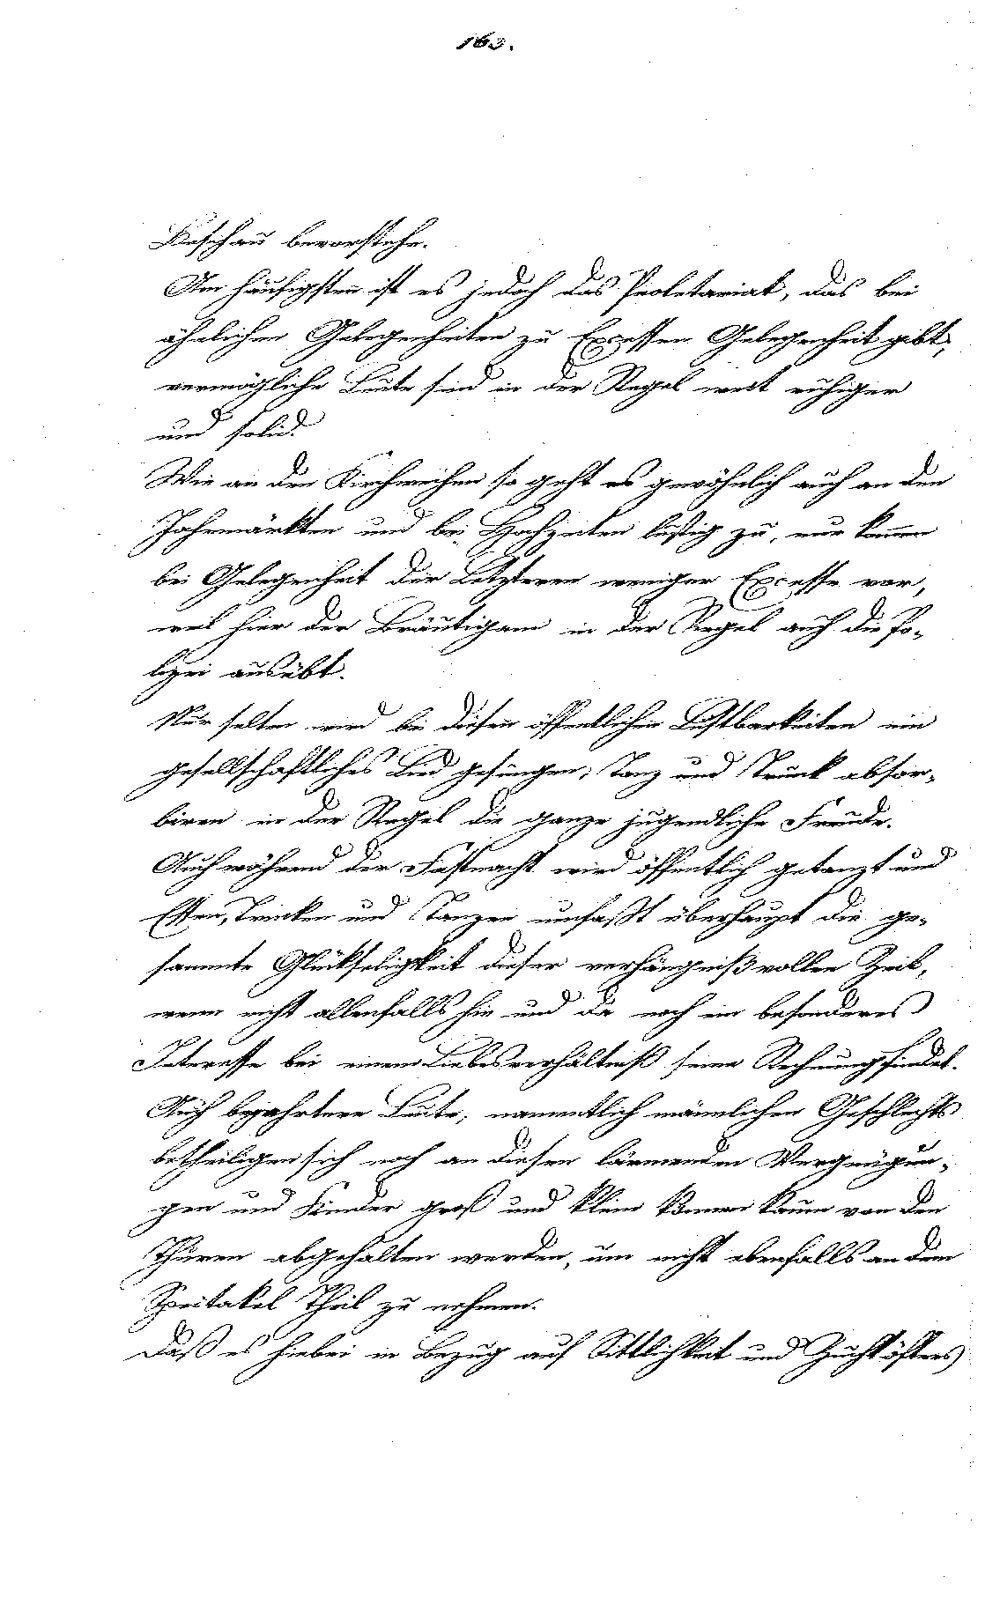 163.
Beschau bevorstehe.
Am häufigsten ist es jedoch das Proletariat, das bei
ähnlichen Gelegenheiten zu Excessen Gelegenheit gibt,
vermögliche Leute sind in der Regel weit ruhiger
und solid.
Wie an den Kirchweihen so geht es gewöhnlich auch an den
Jahrmärkten und bei Hochzeiten lustig zu, nur kommen
bei Gelegenheit der Letzteren weniger Excesse vor,
weil hier der Bräutigam in der Regel auch die Po-
lizei ausübt.
Nur selten wird bei diesen öffentlichen Lustbarkeiten ein
gesellschaftliches Lied gesungen; Tanz und Trunk absor-
biren in der Regel die ganze jugendliche Freude.
Auch während der Fastnacht wird öffentlich getanzt und
Essen, Trinken und Tanzen umfaßt überhaupt die ge-
sammte Glückseligkeit dieser verhängnißvollen Zeit,
wenn nicht allenfalls hie und da noch ein besonderes
Interesse bei einem Liebesverhältniß seine Rechnung findet.
Auch bejahrtere Leute, namentlich männlichen Geschlechts
betheiligen sich noch an diesen lärmenden Vergnügun-
gen und Kinder groß und klein können kaum von den
Thüren abgehalten werden, um nicht ebenfalls an dem
Speitakel Theil zu nehmen.
Daß es hiebei in Bezug auf Sittlichkeit und Zucht öfters